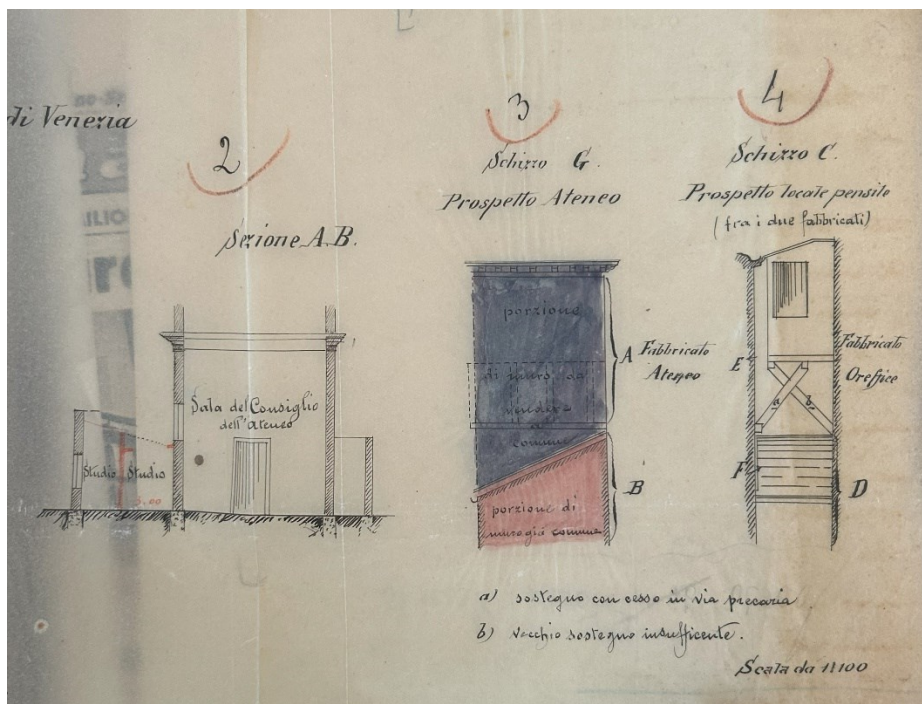 di Venezia
2
Sezione A.B.
Sala del Consiglio
dell'Ateneo
Studio Studio
3.00
3
Schizzo G.
Prospetto Ateneo
porzione
di muro da
vendere
a
comune
A Fabbricato
Ateneo
B
porzione di
muro già comune
4
Schizzo C.
Prospetto locale pensile
(fra i due fabbricati)
E
Fabbricato
Orefice
a b
F
D
a) sostegno concesso in via precaria
b) vecchio sostegno insufficente.
Scala da 1:100